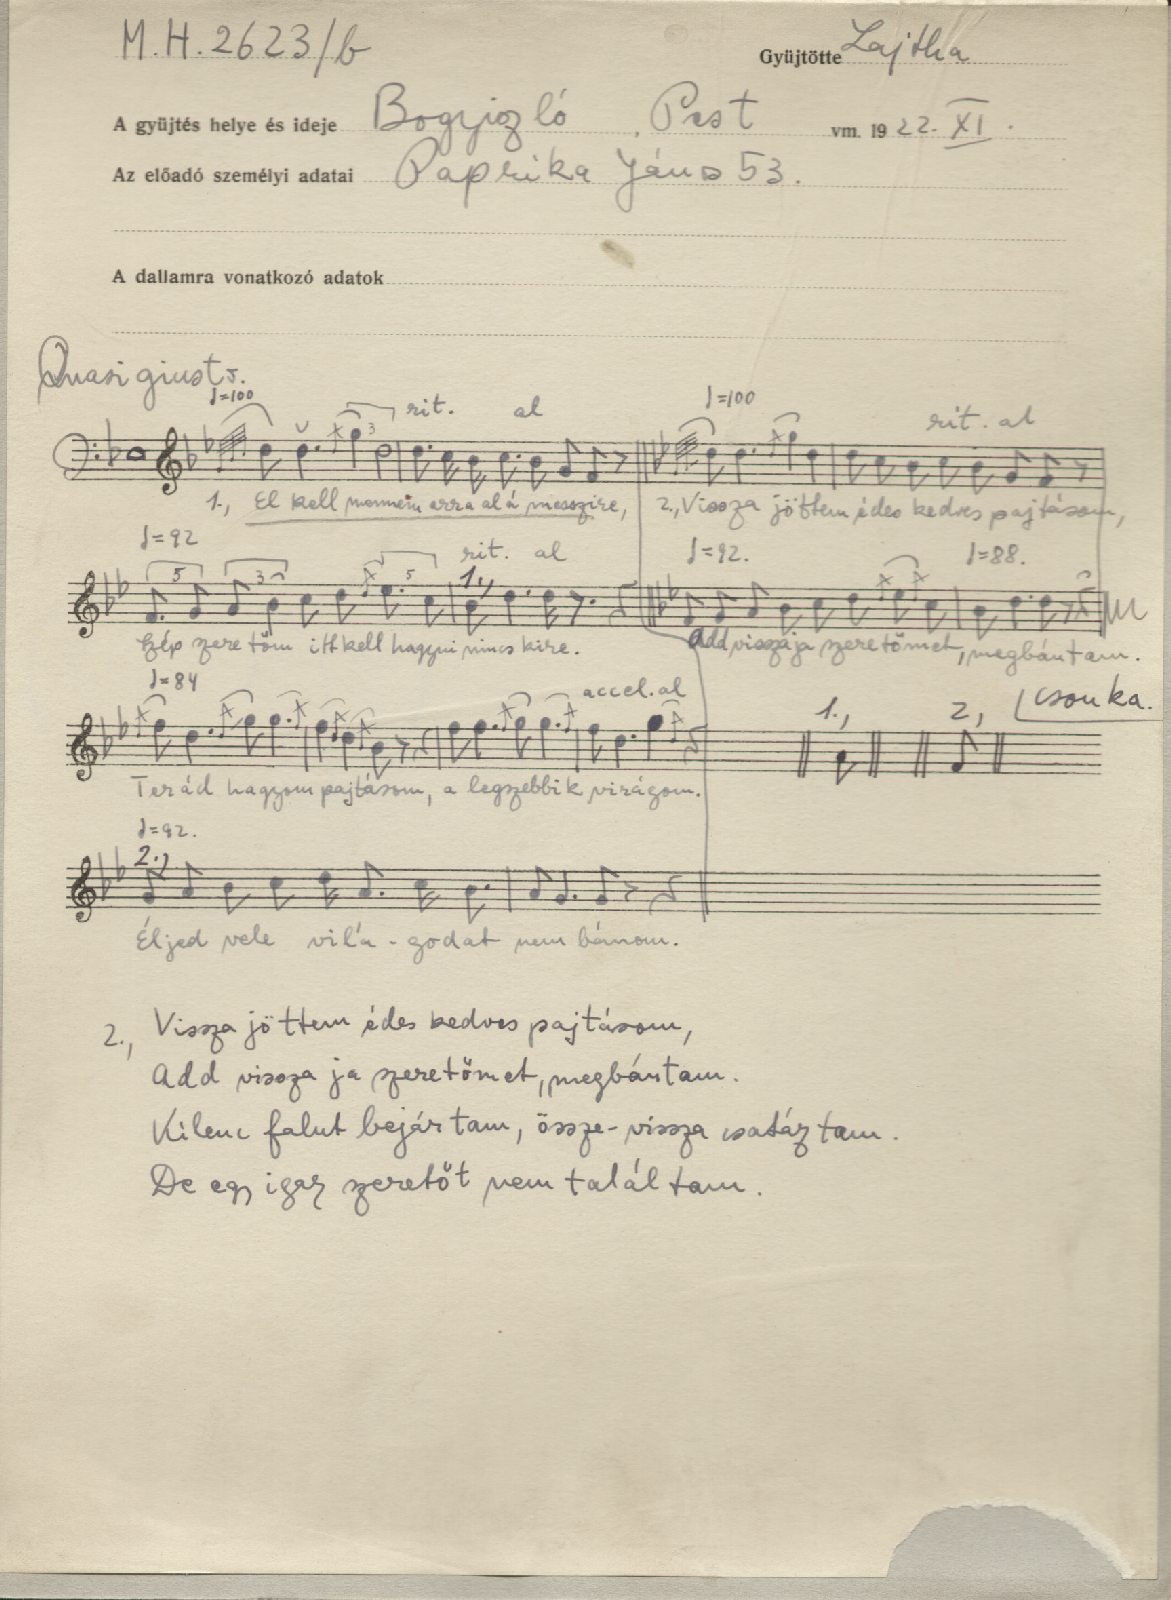 M.H. 2623/b
Gyüjtötte Lajtha
A gyüjtés helye és ideje Bogyiszló, Pest vm. 1922. XI.
Az előadó személyi adatai Paprika János 53.
A dallamra vonatkozó adatok
Quasi giusto.
♩=100 rit. al ♩=100 rit. al
1., El kell mennem arra alá messzire, 2., Vissza jöttem édes kedves pajtásom,
♩=92 rit. al ♩=92. ♩=88.
5 3 5 1.,
Szép szeretőm itt kell hagyni nincs kire. Add vissza ja szeretőmet, megbántam.
♩=84 accel. al 1., 2, csonka.
Terád hagyom pajtásom, a legszebbik virágom.
♩=92.
2.,
Éljed vele vilá-godat nem bánom.
2., Vissza jöttem édes kedves pajtásom,
Add vissza ja szeretőmet, megbántam.
Kilenc falut bejártam, össze-vissza csatáztam.
De egy igaz szeretőt nem találtam.